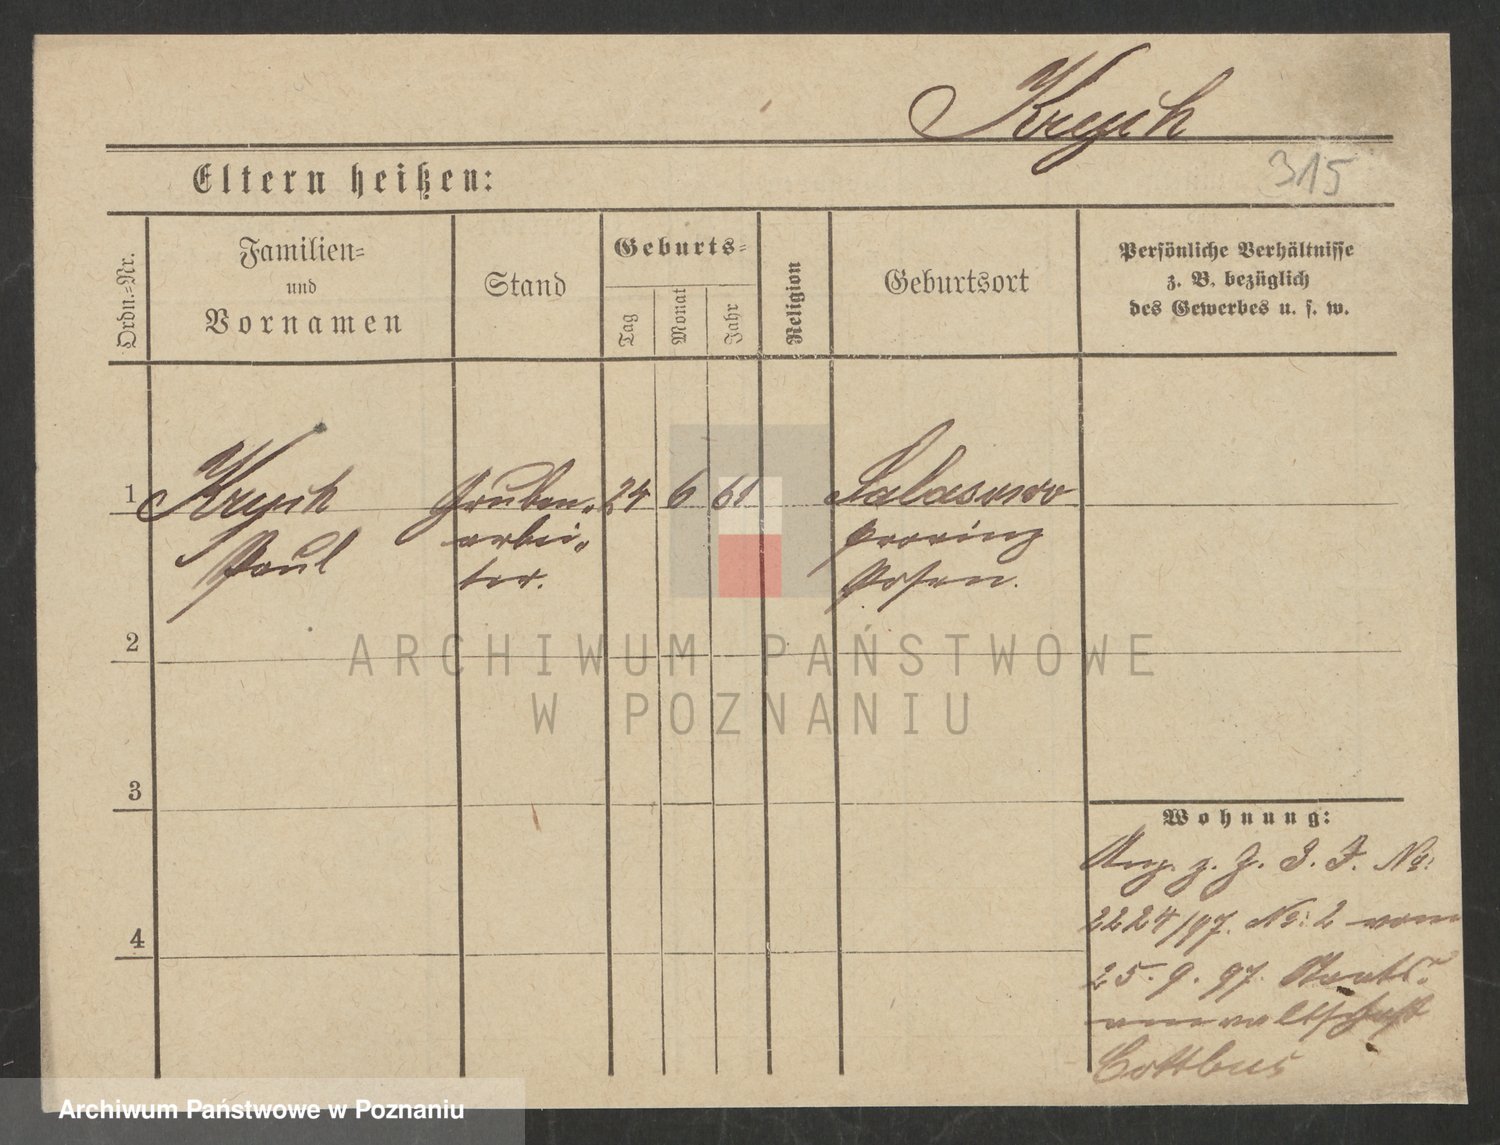 Krych
315
Eltern heißen:
Ordn.=Nr.
Familien=
und
Vornamen
Stand
Geburts=
Tag
Monat
Jahr
Religion
Geburtsort
Persönliche Verhältnisse
z. B. bezüglich
des Gewerbes u. s. w.
1
Krych
Paul
Gruben-
arbei-
ter.
24
6
61
Salasewo
Provinz
Posen.
2
ARCHIWUM PAŃSTWOWE
W POZNANIU
3
Wohnung:
z. J. J. No:
2224/97. No: 2 vom
4
25. 9. 97. Staats-
anwaltschaft
Cottbus
Archiwum Państwowe w Poznaniu